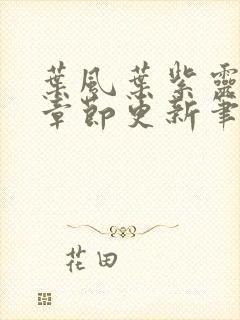 葉風葉紫靈
章節更新筆
花田